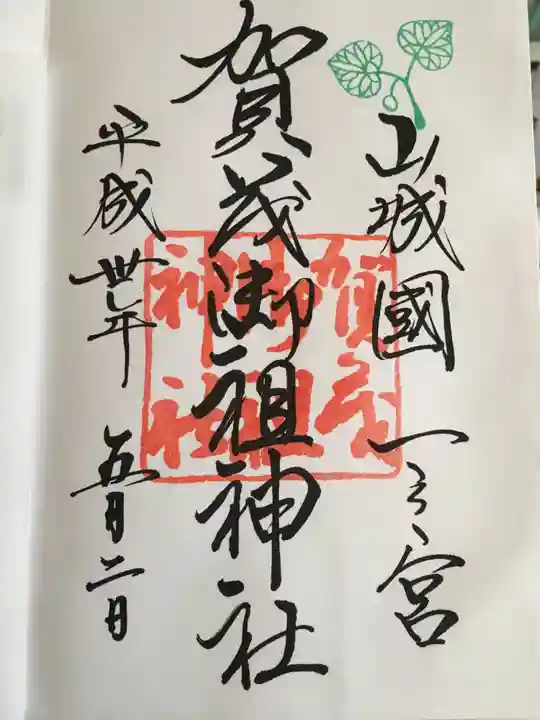 山城國 一之宮
賀茂御祖神社
賀茂
御祖
神社
平成卅年 五月二日